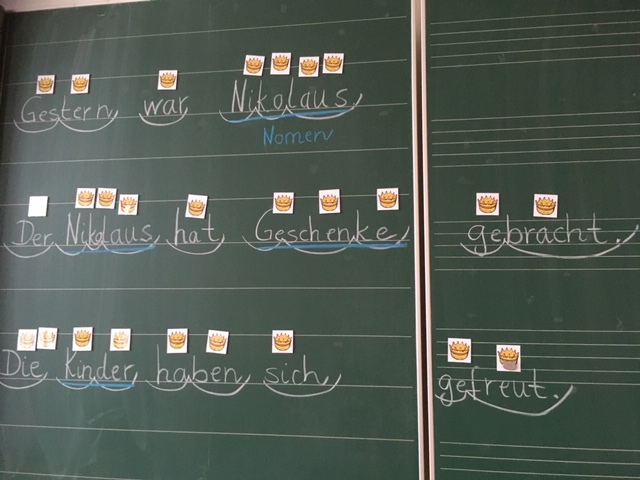 Gestern war Nikolaus
Nomen
Der Nikolaus hat Geschenke gebracht.
Die Kinder haben sich gefreut.